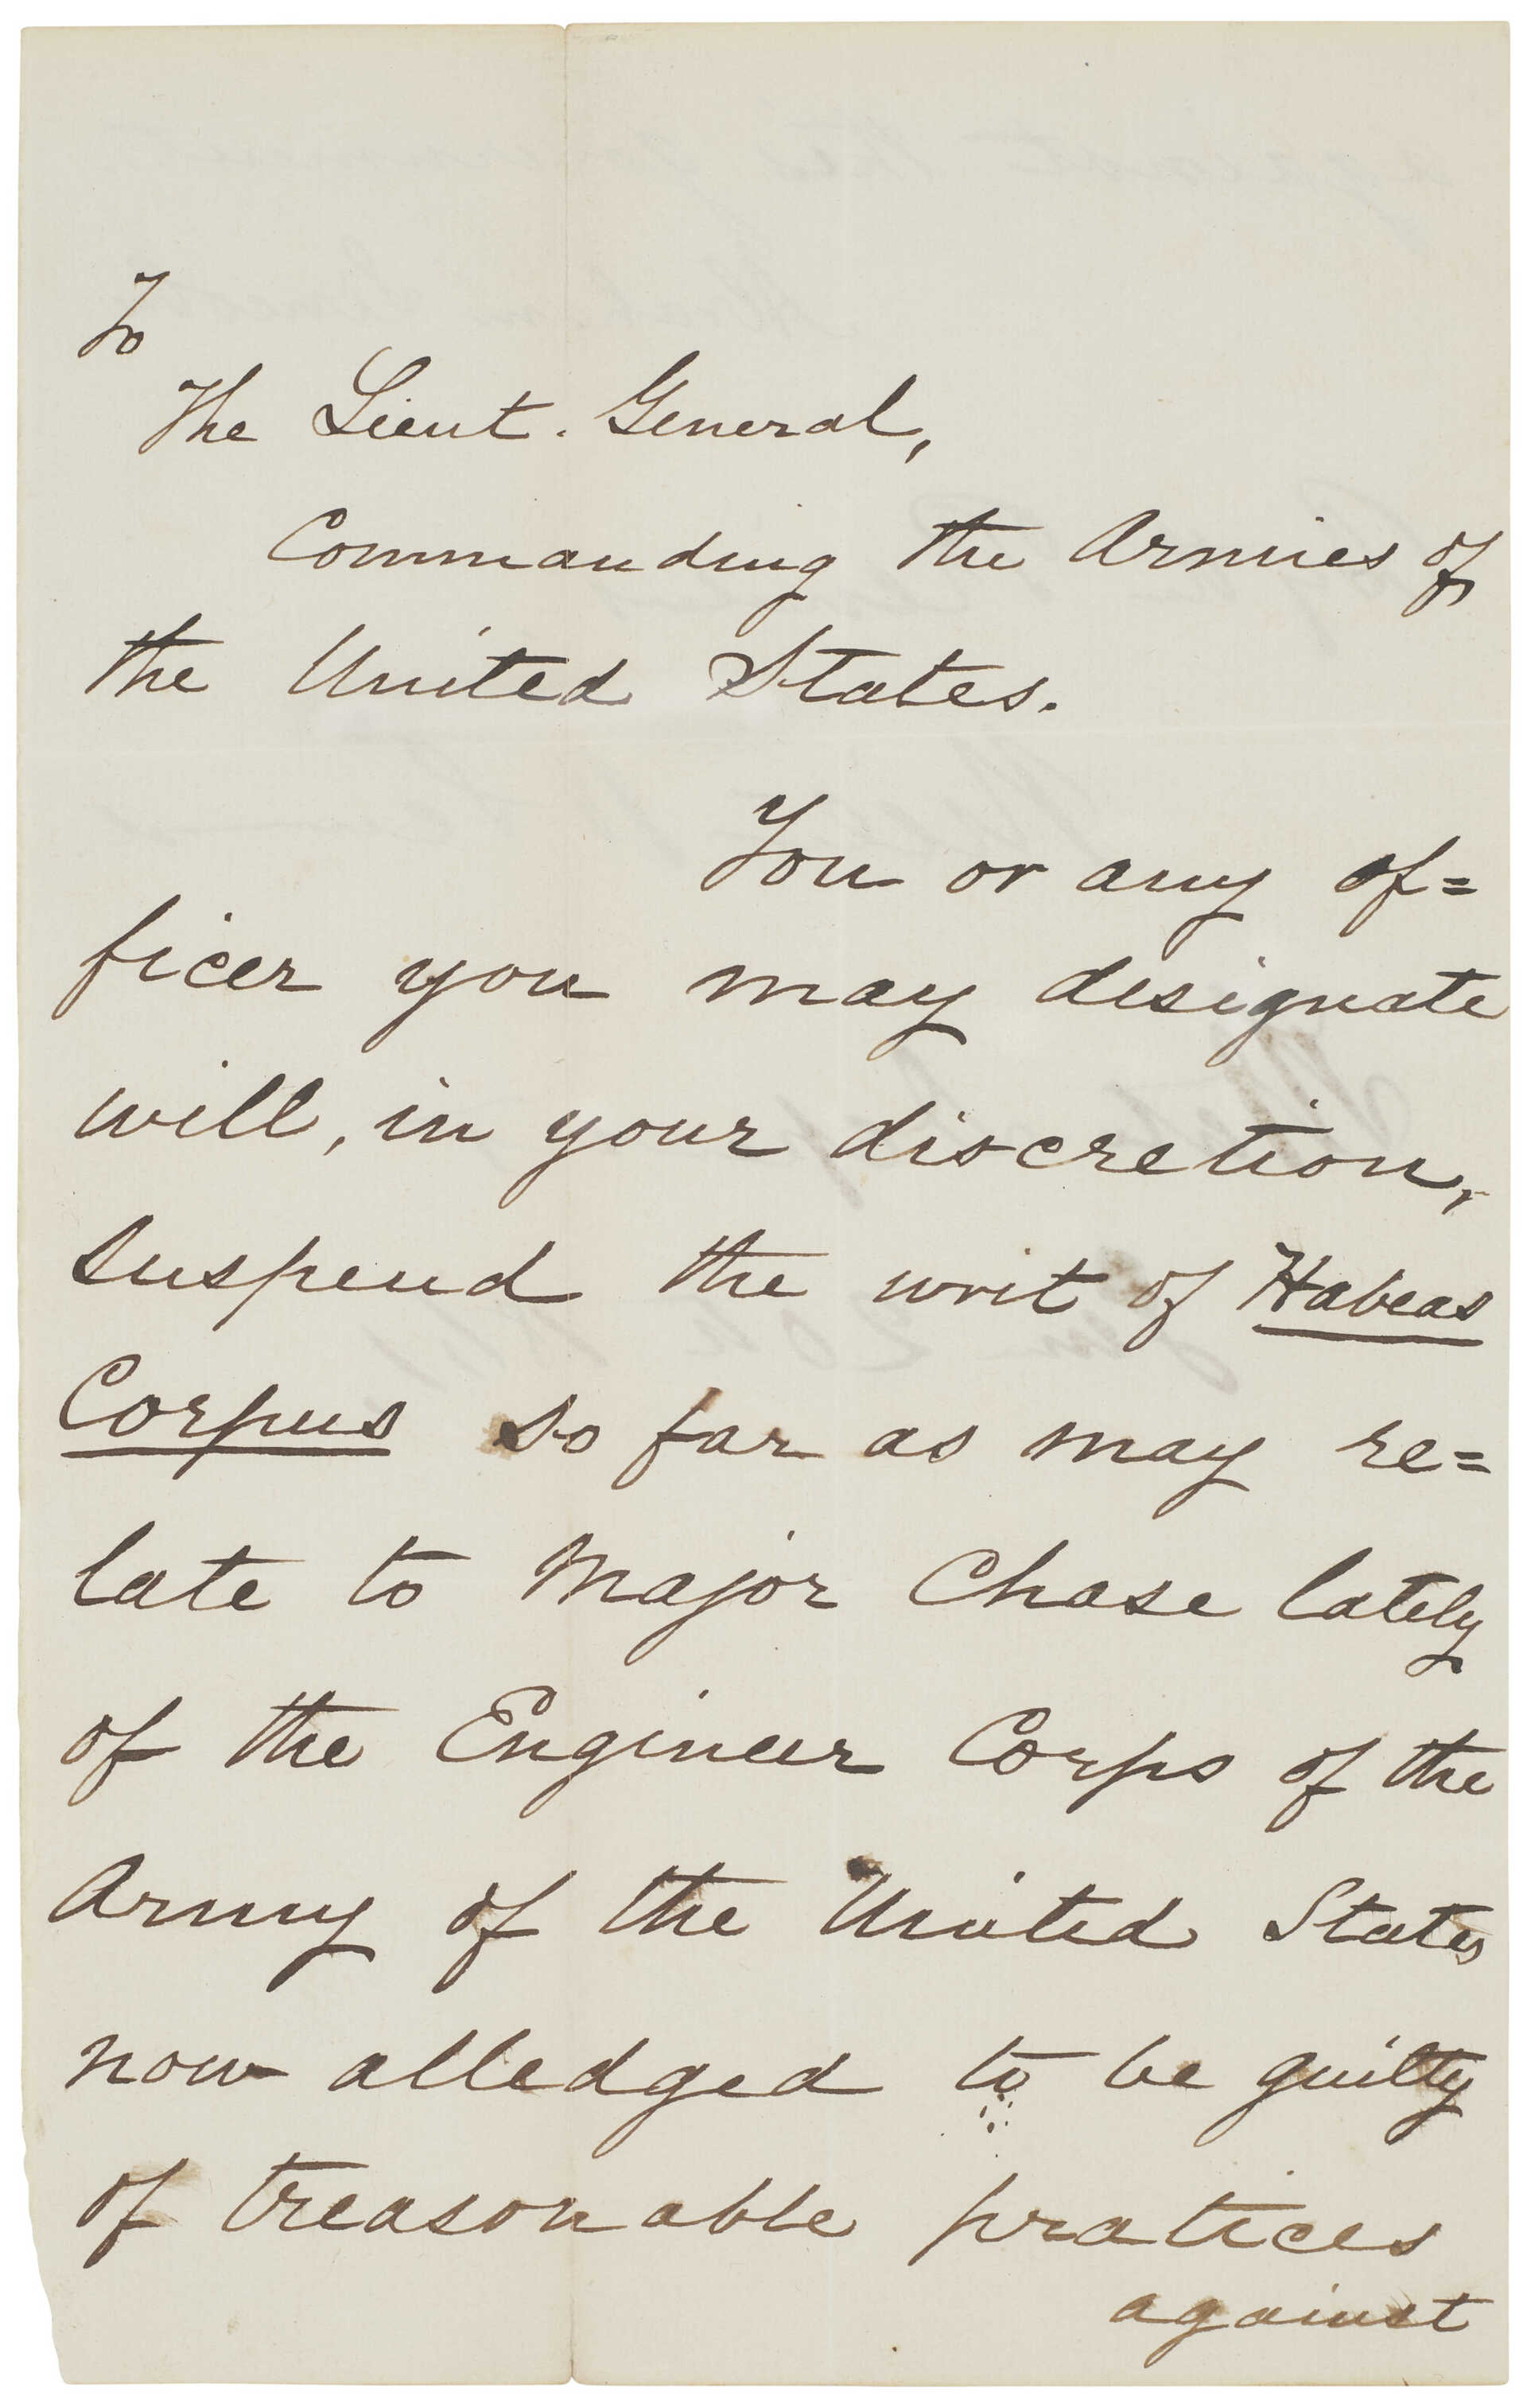 To
The Lieut. General,
Commanding the Armies of
the United States.
You or any of=
ficer you may designate
will, in your discretion,
suspend the writ of Habeas
Corpus so far as may re=
late to Major Chase lately
of the Engineer Corps of the
Army of the United States
now alledged to be guilty
of treasonable pratices
against